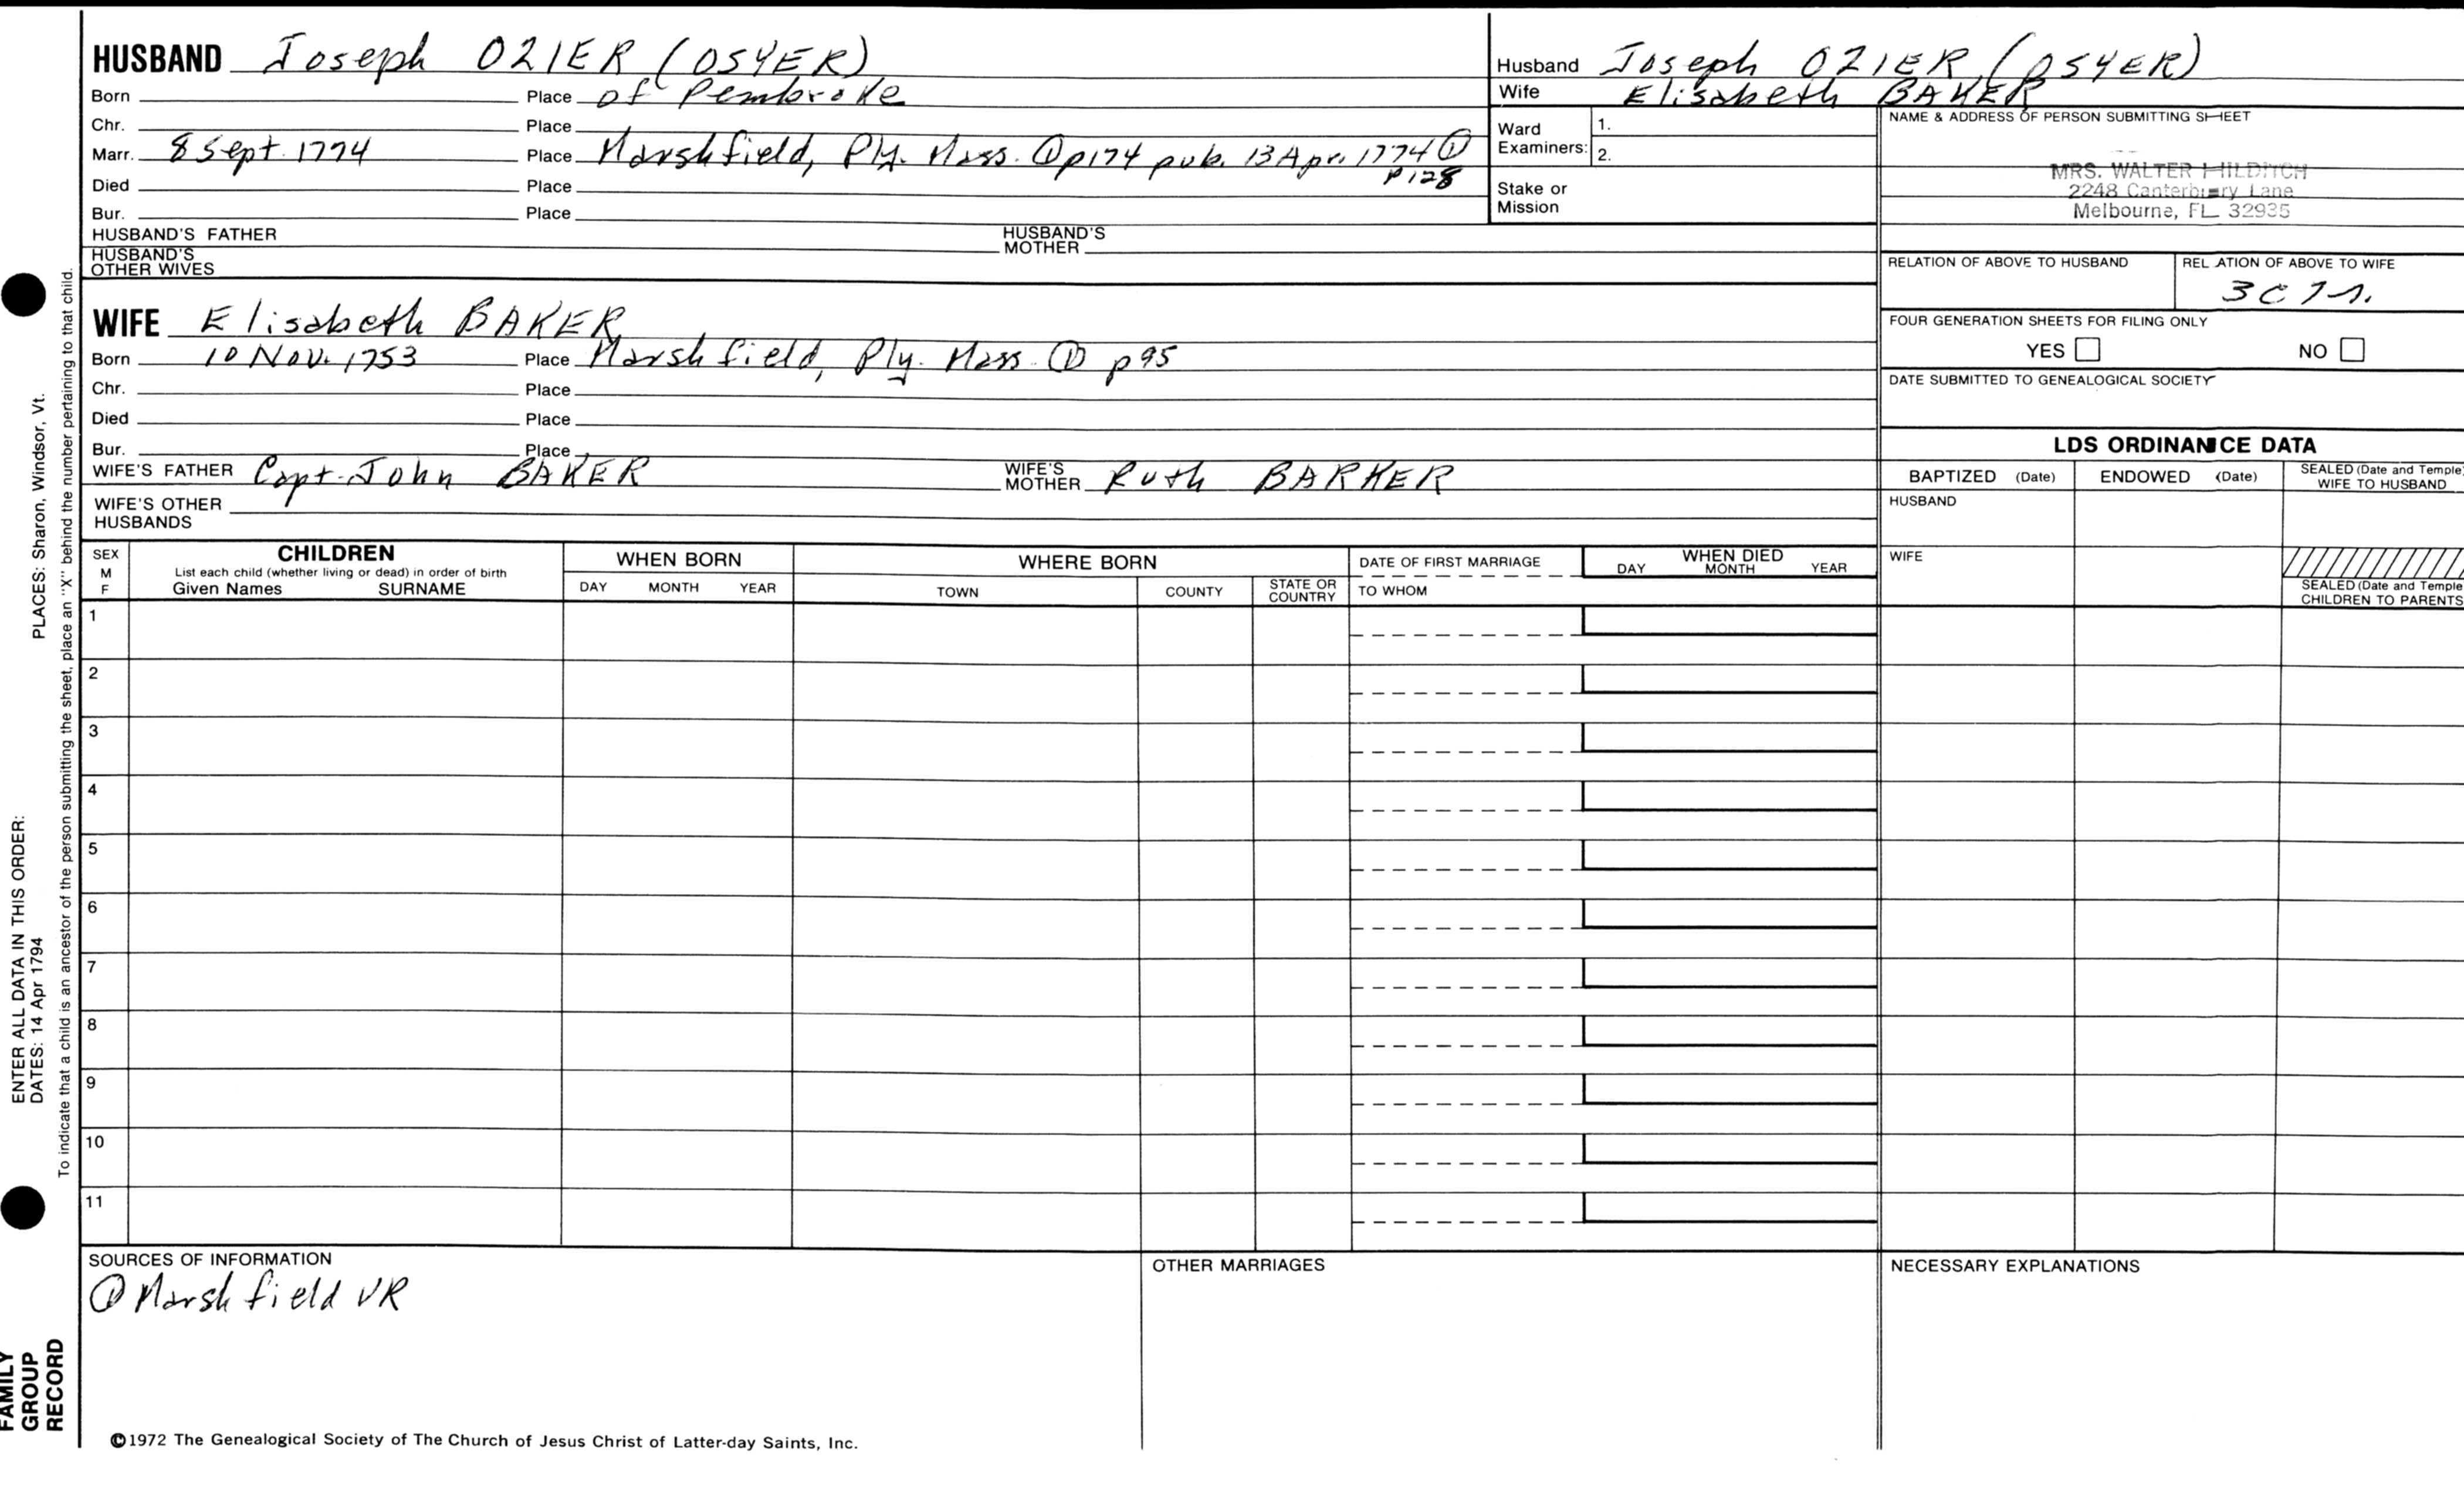 HUSBAND Joseph OZIER (OSYER)
Born Place of Pembroke
Chr. Place
Marr. 8 Sept. 1774 Place Marshfield, Ply. Mass. ① p174 pub. 13 Apr. 1774 ①
p128
Died Place
Bur. Place
HUSBAND'S FATHER HUSBAND'S MOTHER
HUSBAND'S OTHER WIVES
Husband Joseph OZIER (OSYER)
Wife Elisabeth BAKER
Ward Examiners: 1.
2.
Stake or Mission
NAME & ADDRESS OF PERSON SUBMITTING SHEET
MRS. WALTER HILDITCH
2248 Canterbury Lane
Melbourne, FL 32935
RELATION OF ABOVE TO HUSBAND RELATION OF ABOVE TO WIFE
FOUR GENERATION SHEETS FOR FILING ONLY
YES NO
DATE SUBMITTED TO GENEALOGICAL SOCIETY
WIFE Elisabeth BAKER
Born 10 Nov. 1753 Place Marshfield, Ply. Mass. ① p95
Chr. Place
Died Place
Bur. Place
WIFE'S FATHER Capt. John BAKER WIFE'S MOTHER Ruth BARKER
WIFE'S OTHER HUSBANDS
LDS ORDINANCE DATA
BAPTIZED (Date) ENDOWED (Date) SEALED (Date and Temple) WIFE TO HUSBAND
HUSBAND
WIFE
SEALED (Date and Temple) CHILDREN TO PARENTS
SEX M F
CHILDREN
List each child (whether living or dead) in order of birth
Given Names SURNAME
WHEN BORN
DAY MONTH YEAR
WHERE BORN
TOWN COUNTY STATE OR COUNTRY
DATE OF FIRST MARRIAGE
TO WHOM
WHEN DIED
DAY MONTH YEAR
1
2
3
4
5
6
7
8
9
10
11
SOURCES OF INFORMATION
① Marshfield VR
OTHER MARRIAGES
NECESSARY EXPLANATIONS
©1972 The Genealogical Society of The Church of Jesus Christ of Latter-day Saints, Inc.
FAMILY
GROUP
RECORD
ENTER ALL DATA IN THIS ORDER:
DATES: 14 Apr 1794 PLACES: Sharon, Windsor, Vt.
To indicate that a child is an ancestor of the person submitting the sheet, place an "X" behind the number pertaining to that child.